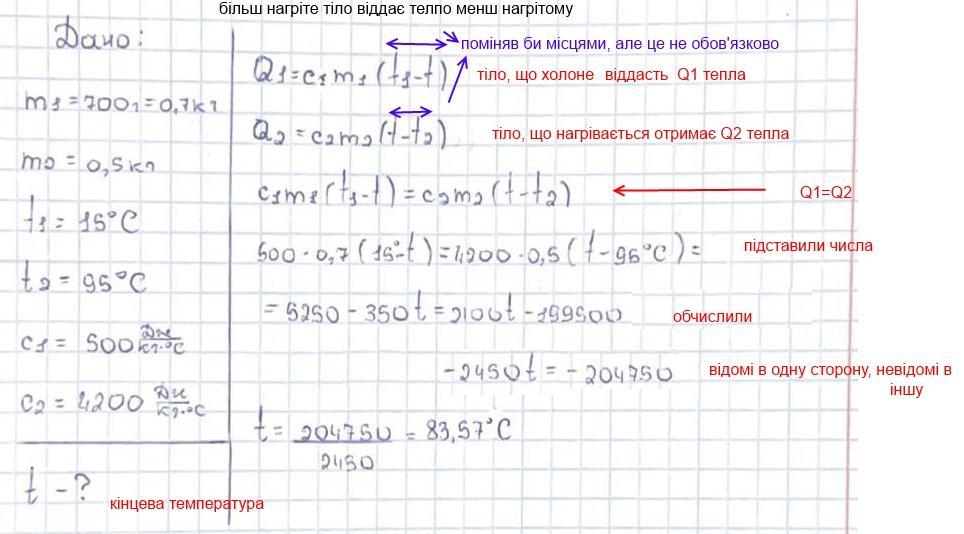 більш нагріте тіло віддає телпо менш нагрітому
Дано:
m1 = 700г = 0,7кг
m2 = 0,5кг
t1 = 15°C
t2 = 95°C
c1 = 500 Дж/кг·°C
c2 = 4200 Дж/кг·°C
t - ?
кінцева температура
поміняв би місцями, але це не обов'язково
Q1 = c1m1(t1-t)
тіло, що холоне віддасть Q1 тепла
Q2 = c2m2(t-t2)
тіло, що нагрівається отримає Q2 тепла
c1m1(t1-t) = c2m2(t-t2)
Q1=Q2
500·0,7(15°-t) = 4200·0,5(t-95°C) =
підставили числа
= 5250 - 350t = 2100t - 199500
обчислили
-2450t = -204750
відомі в одну сторону, невідомі в
іншу
t = 204750/2450 = 83,57°C